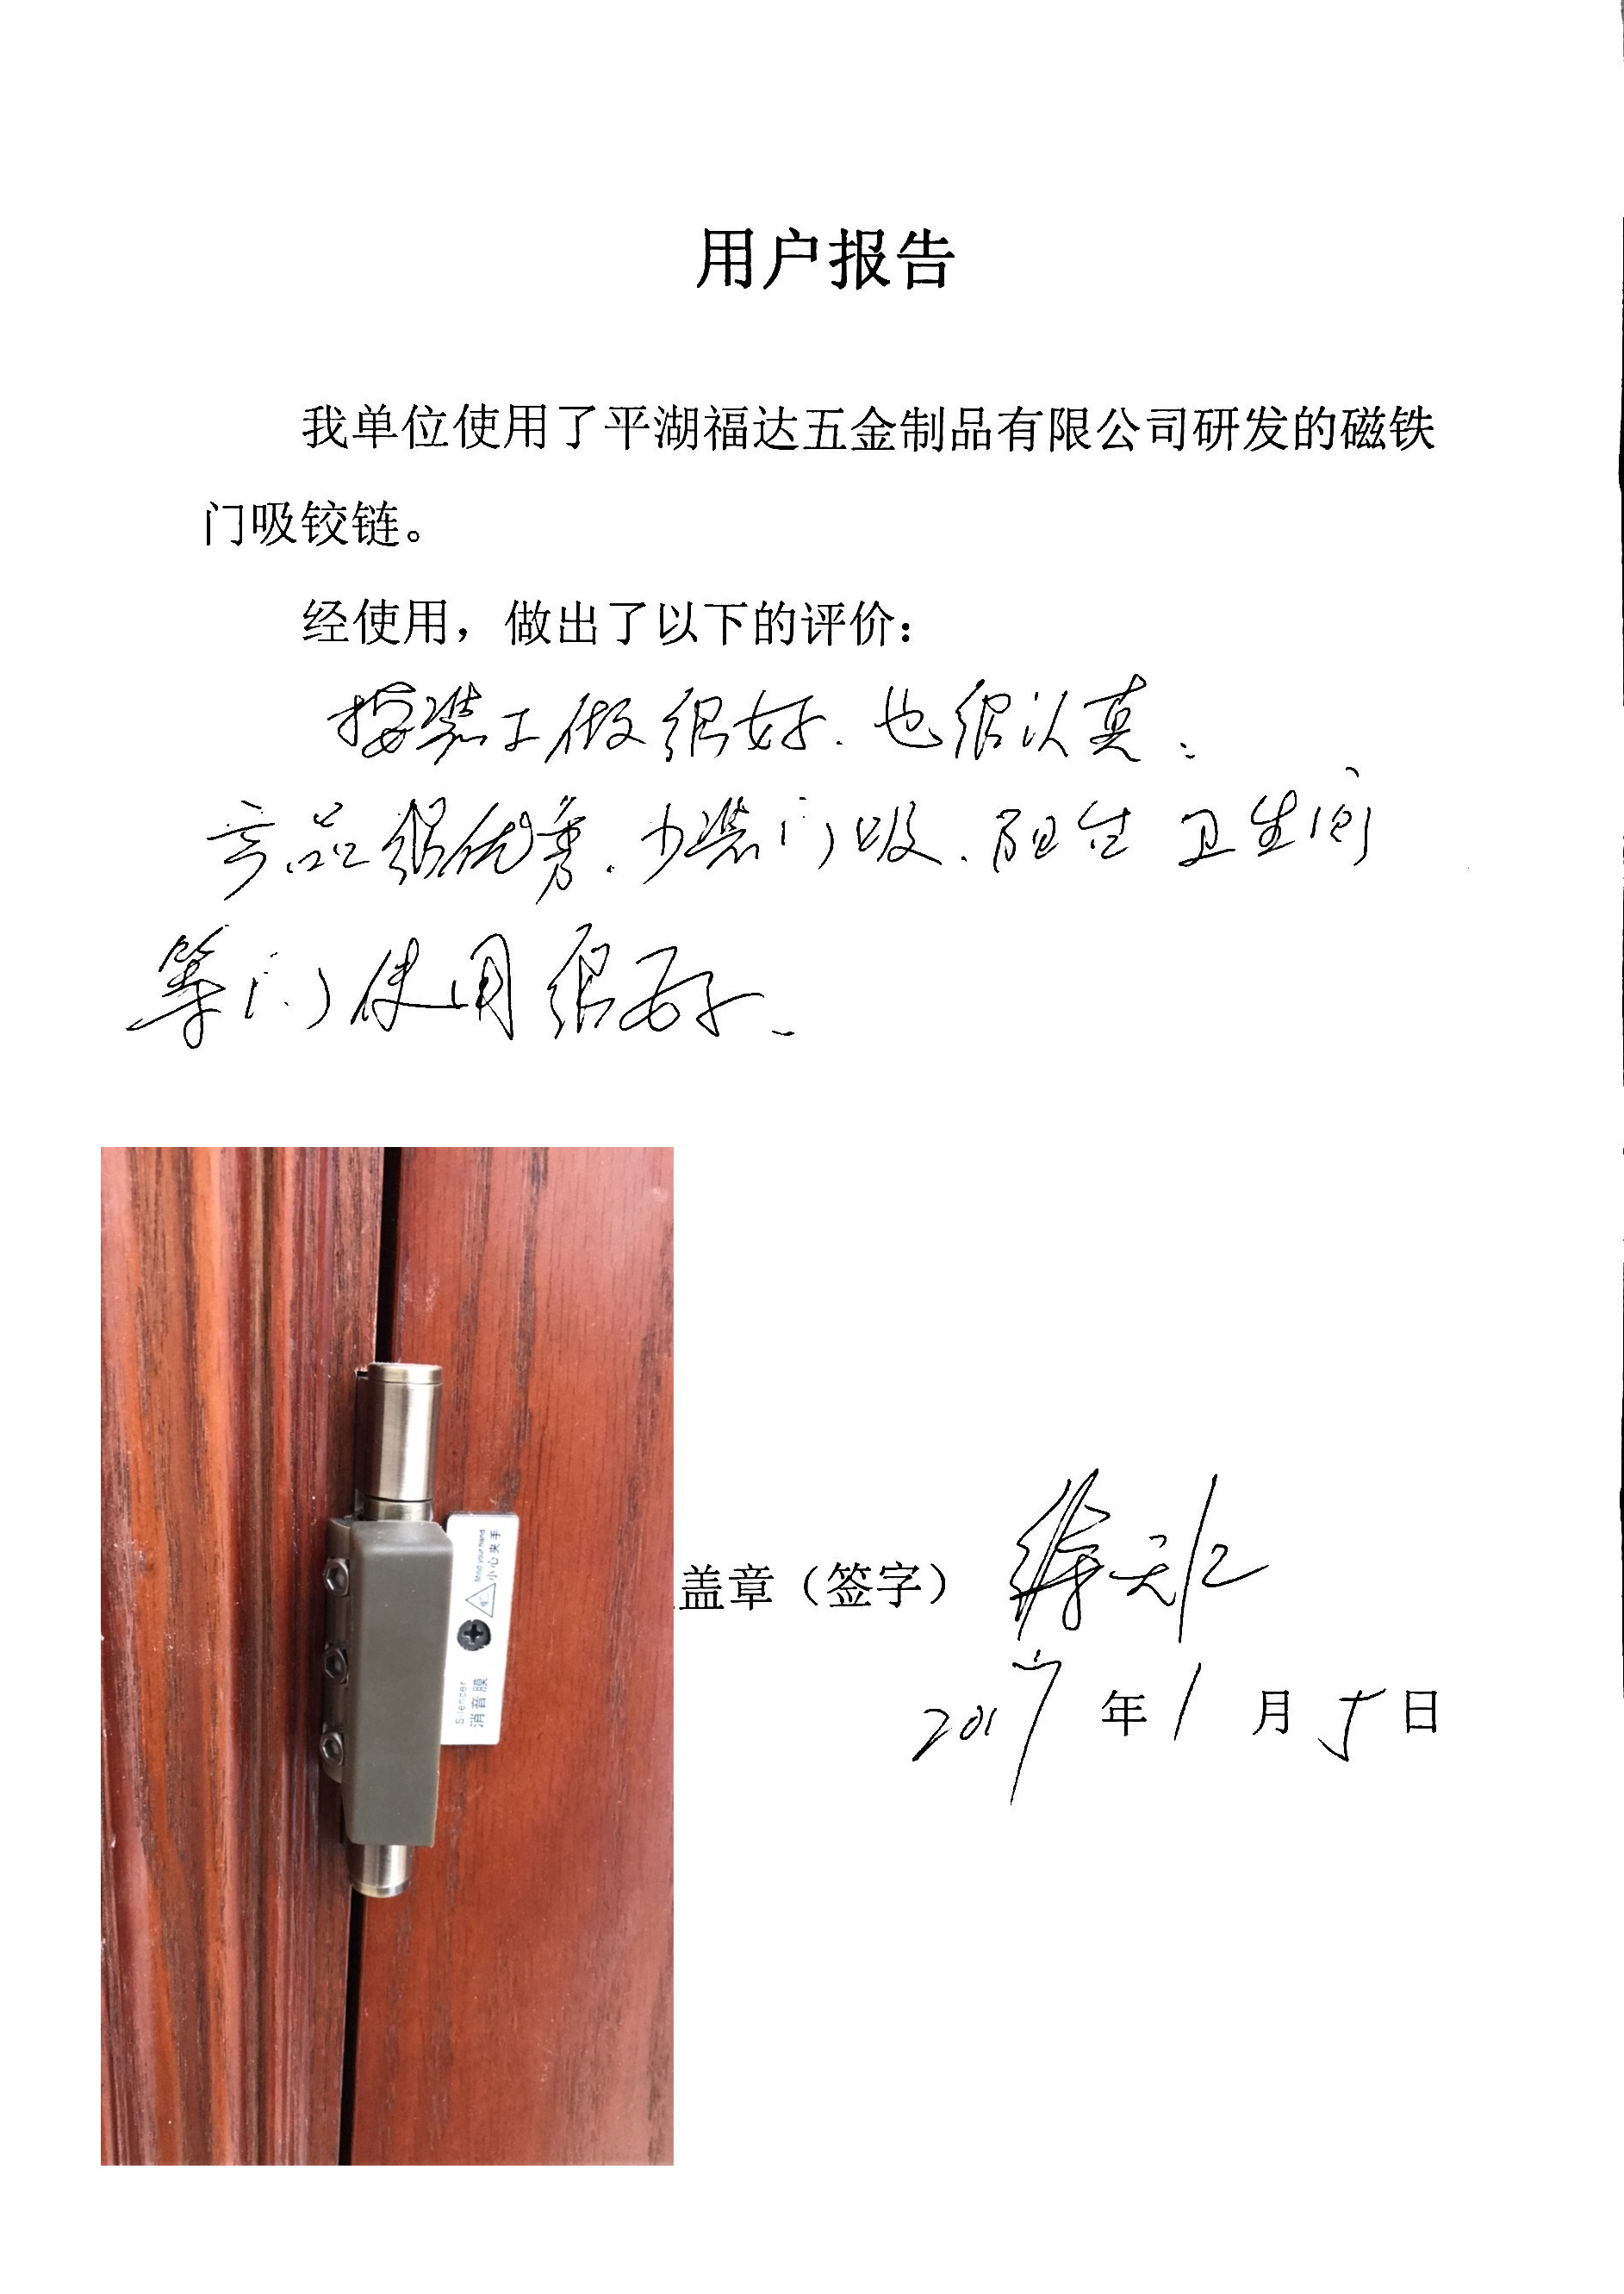 用户报告
我单位使用了平湖福达五金制品有限公司研发的磁铁
门吸铰链。
经使用，做出了以下的评价：
按装工做很好.也很认真.
产品很优秀.少装门吸.阳台 卫生间
等门使用很好.
Mind your hand
小心夹手
Silencer
消音膜
盖章（签字）
2017年1月5日